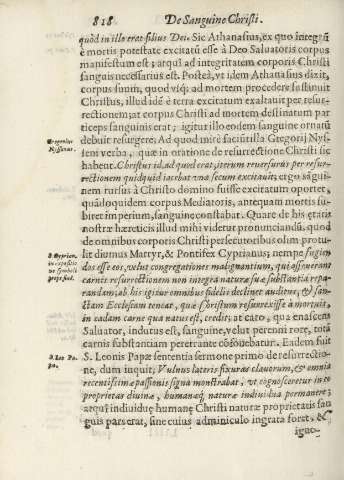 818 De Sanguine Christi.
quòd in illo erat filius Dei. Sic Athanasius, ex quo integrũ
è mortis potestate excitatũ esse à Deo Saluatoris corpus
manifestum est; atqui ad integritatem corporis Christi
sanguis necessarius est. Posteà, vt idem Athanasius dixit,
corpus suum, quod vsq; ad mortem procedere sustinuit
Christus, illud idẽ è terra excitatum exaltauit per resur-
rectionem; at corpus Christi ad mortem destinatum par
ticeps sanguinis erat; igitur illo eodem sanguine ornatũ
debuit resurgere; Ad quod mirè facit illa Gregorij Nys-
Gregorius
Nyssenus.
seni verba, quæ in oratione de resurrectione Christi
habet. Christus id, ad quod erat, iterum reuersurus per resur-
rectionem quidquid iacebat vnà secum excitauit; ergo sãgui-
nem rursus à Christo domino fuisse excitatum oportet,
quãdoquidem corpus Mediatoris, antequam mortis su-
biret imperium, sanguine constabat. Quare de his ętatis
nostræ hæreticis illud mihi videtur pronunciandũ, quod
de omnibus corporis Christi persecutoribus olim protu-
lit diuinus Martyr, & Pontifex Cyprianus; nempe fugien
D. Cyprian.
in expositio
ne symboli
prope finẽ.
dos esse eos, velut congregationes malignantium, qui asseuerant
carnis resurrectionem non integra naturæ suæ substantia repa-
randam; ab his igitur omnibus fidelis declinet auditus, & san-
ctam Ecclesiam teneat, quæ Christum resurrexisse à mortuis,
in eadem carne qua natus est, credit; at caro, qua enascens
Saluator, indutus est, sanguine, velut perenni rore, totã
carnis substantiam peretrante cõfouebatur. Eadem fuit
D. Leo Pa-
pa.
S. Leonis Papæ sententia sermone primo de resurrectio-
ne, dum inquit, Vulnus lateris fixuras clauorum, & omnia
recentissimæ passionis signa monstrabat, vt cognosceretur in eo
proprietas diuinæ, humanæq, naturæ indiuidua permanere;
atqui indiuiduę humanę Christi naturæ proprietatis san
guis pars erat, sine cuius adminiculo ingrata foret, &
igno-